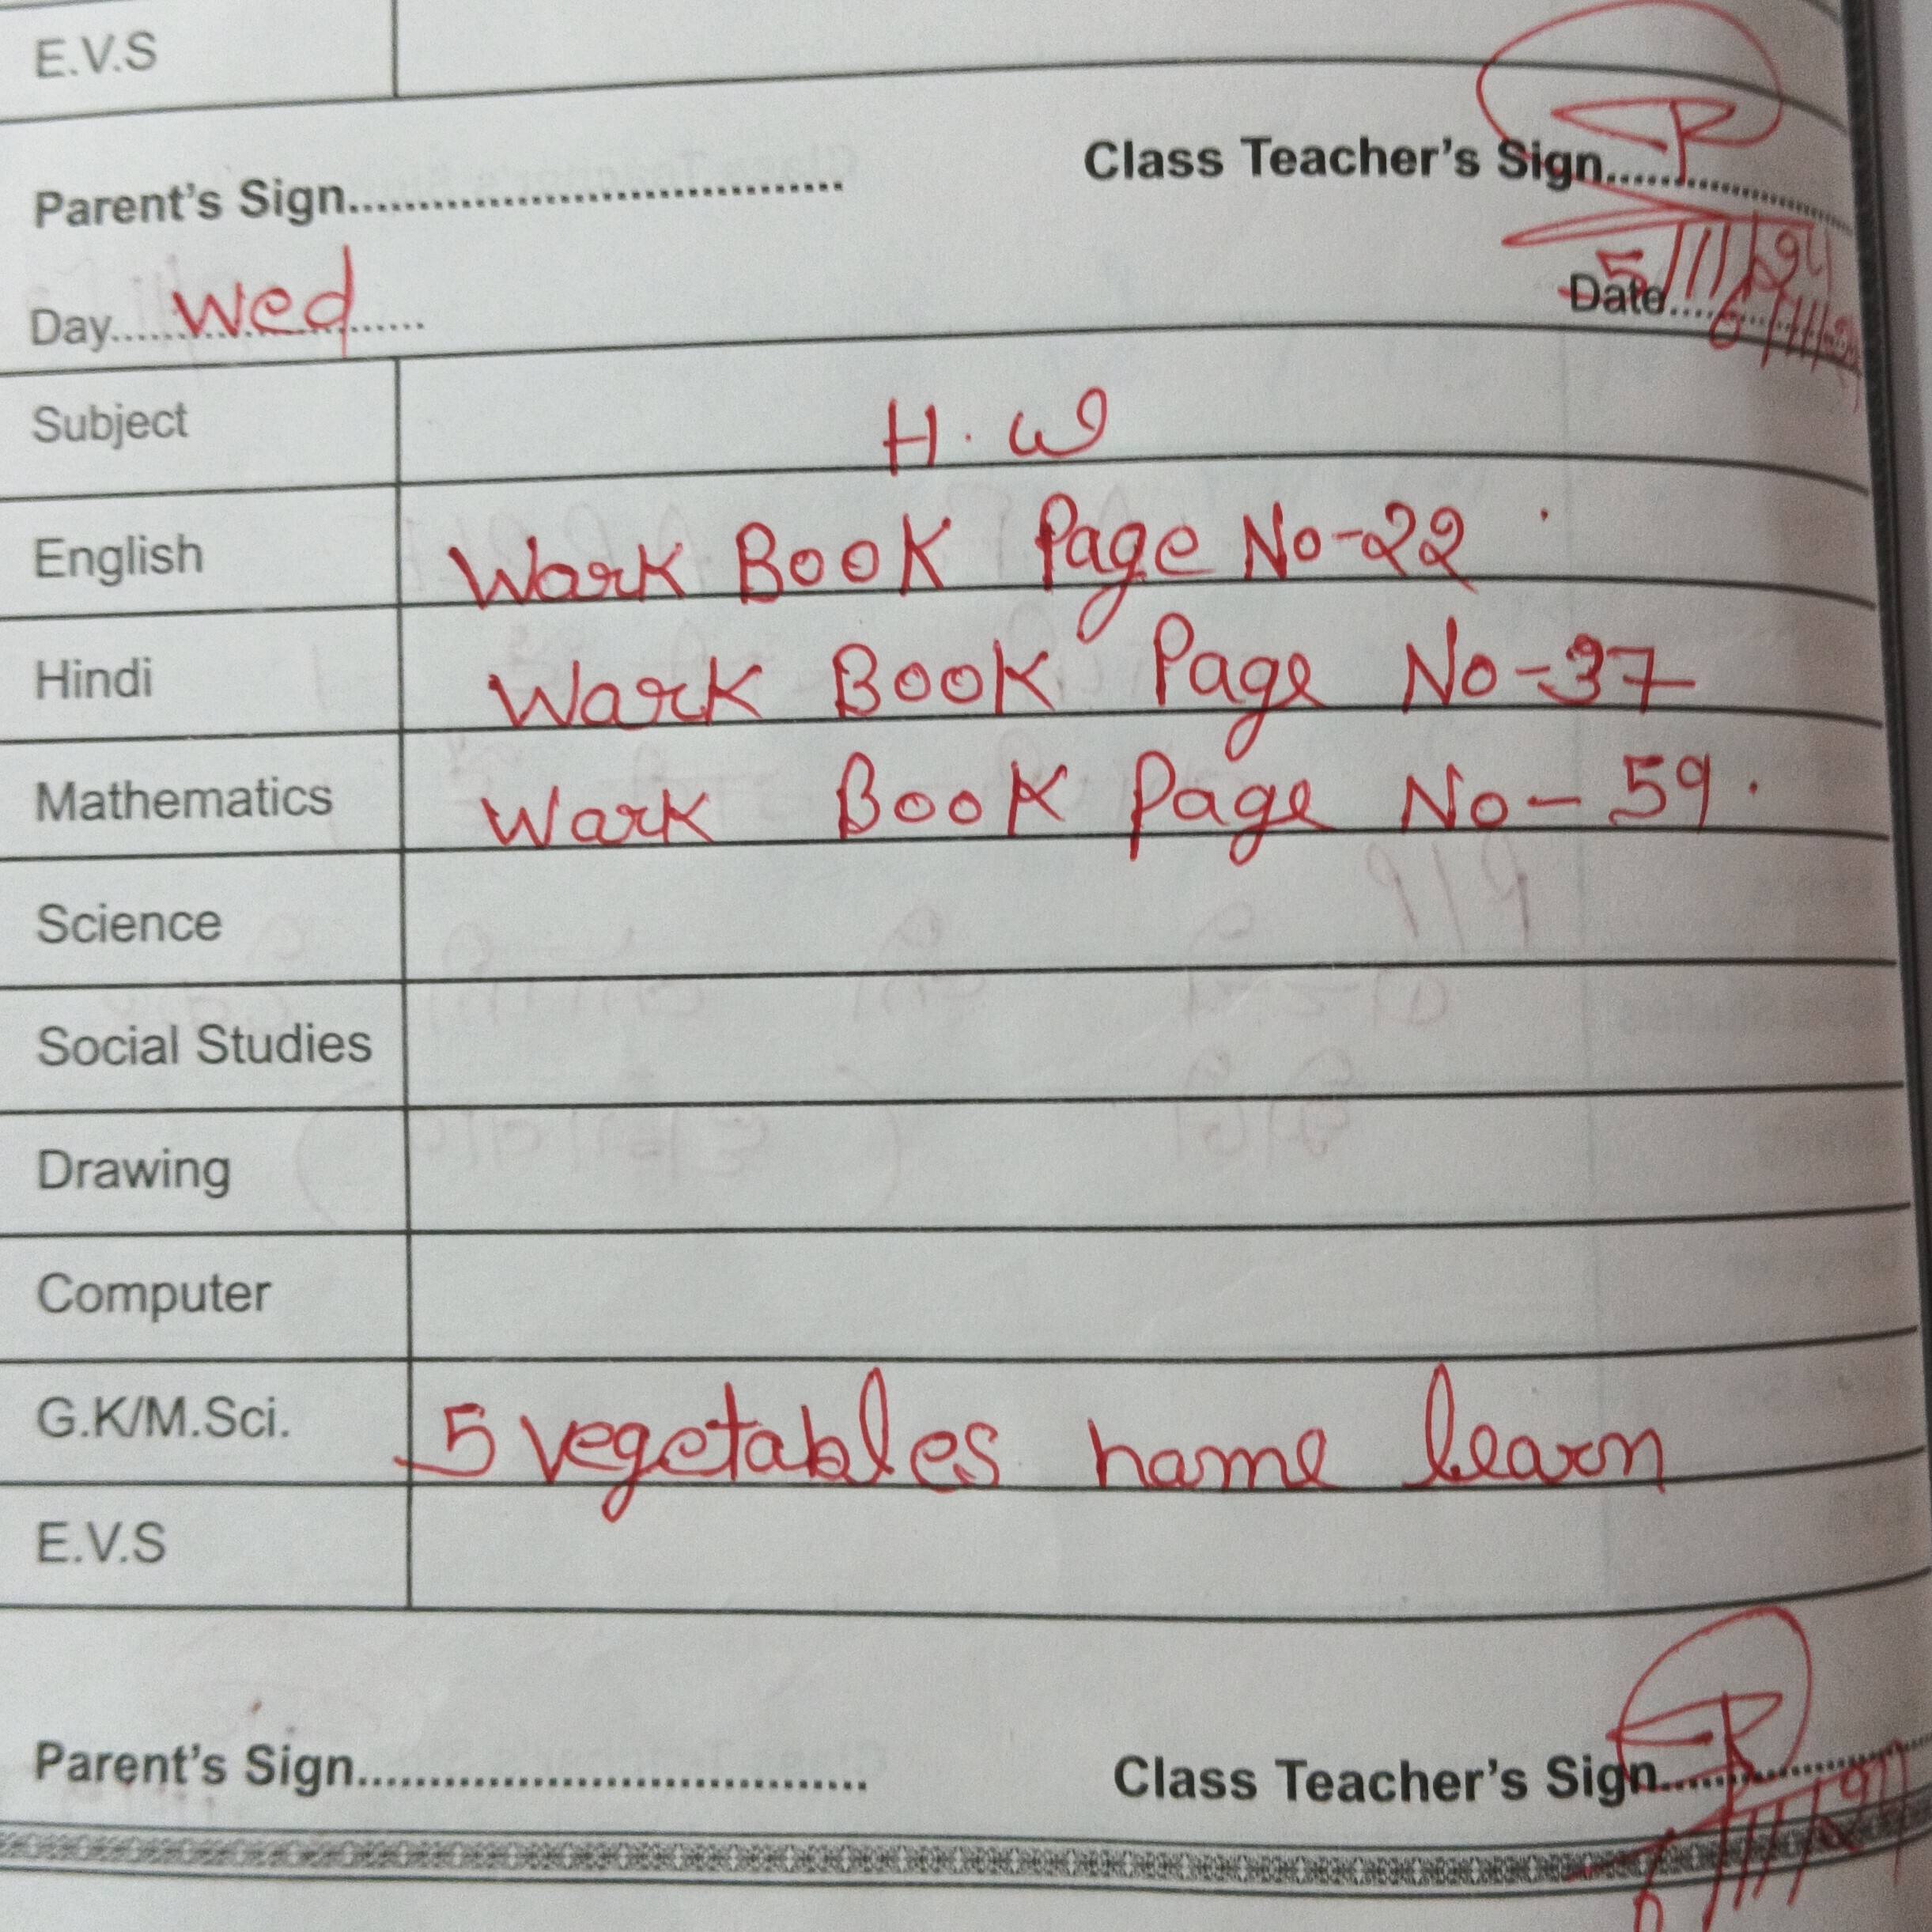 E.V.S
Parent's Sign.......................................... Class Teacher's Sign........................
5/11/24
Day......Wed...... Date....6/11/24
Subject H.W
English Wark Book Page No-22
Hindi Wark Book Page No-37
Mathematics Wark Book Page No-59.
Science
Social Studies
Drawing
Computer
G.K/M.Sci. 5 vegetables name learn
E.V.S
Parent's Sign.......................................... Class Teacher's Sign........................
6/11/24